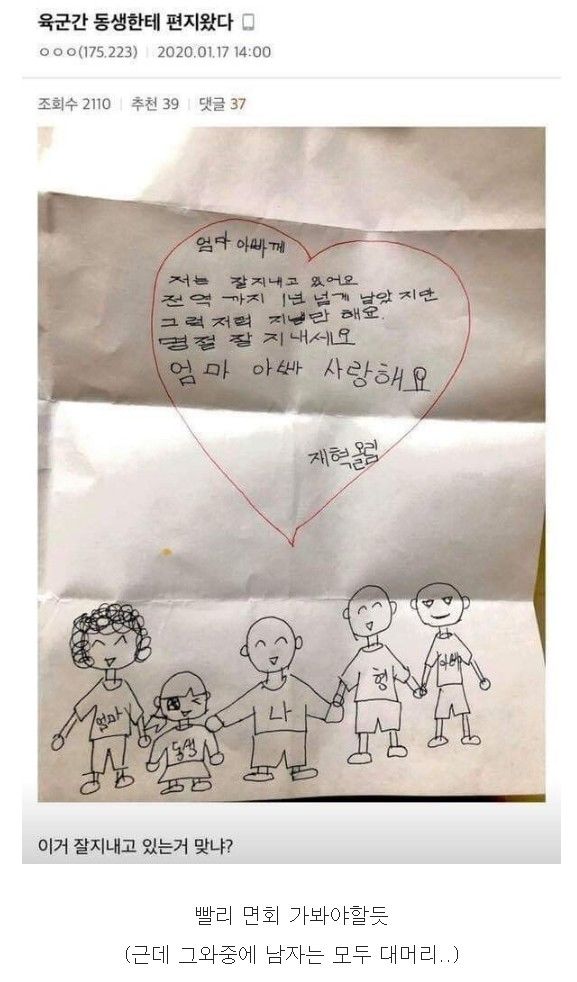 육군간 동생한테 편지왔다
ㅇㅇㅇ(175.223) | 2020.01.17 14:00
조회수 2110 | 추천 39 | 댓글 37
엄마 아빠께
저는 잘지내고 있어요
전역 까지 1년 넘게 남았지만
그럭저럭 지낼만 해요.
명절 잘 지내세요
엄마 아빠 사랑해요
재혁올림
엄마
동생
나
형
아빠
이거 잘지내고 있는거 맞냐?
빨리 면회 가봐야할듯
(근데 그와중에 남자는 모두 대머리..)